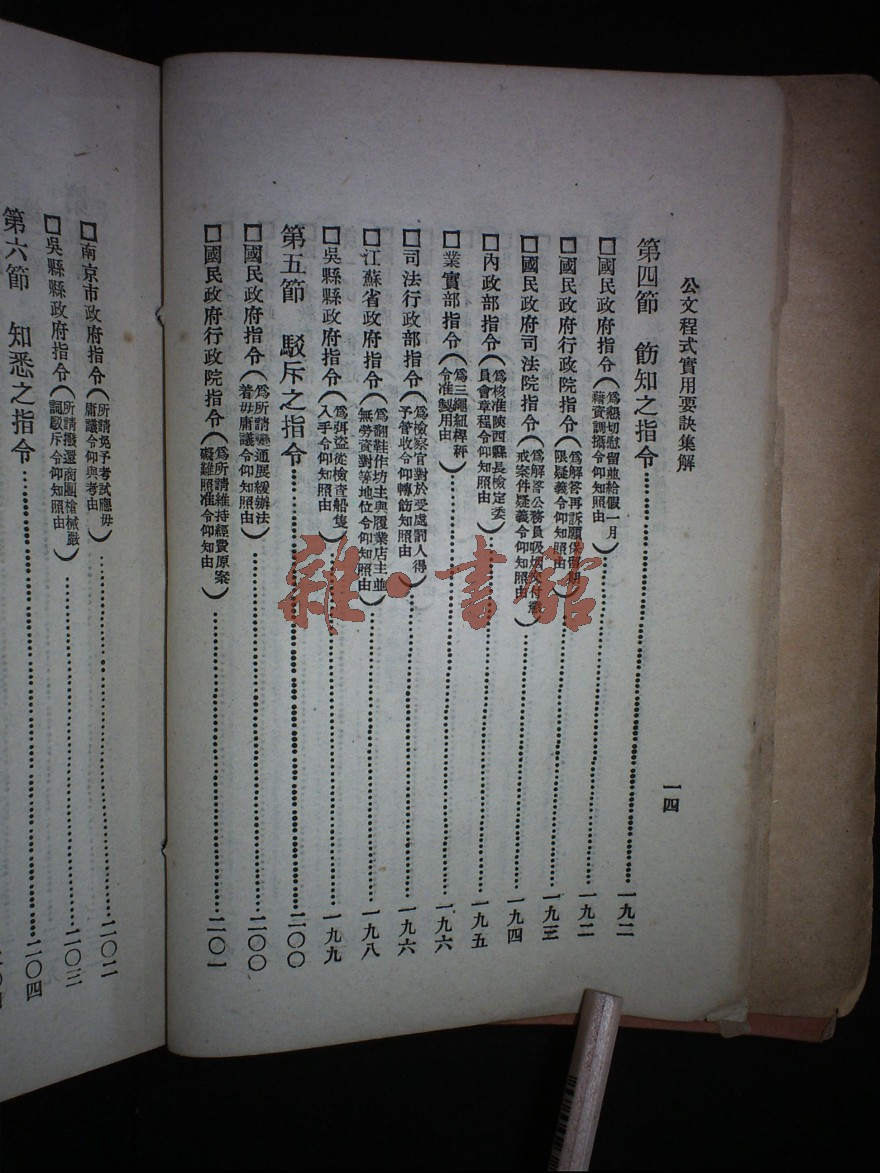 公文程式實用要訣集解
一四
第四節　飭知之指令……一九二
□國民政府指令（爲懇切慰留並給假一月藉資調攝令仰知照由）……一九二
□國民政府行政院指令（爲解答再訴願係留期限疑義令仰知照由）……一九三
□國民政府司法院指令（爲解答公務員吸烟交付懲戒案件疑義令仰知照由）……一九四
□內政部指令（爲核准陝西縣長檢定委員會章程令仰知照由）……一九五
□業實部指令（爲三繩紐稈秤令准製用由）……一九六
□司法行政部指令（爲檢察官對於受處罰人得予管收令仰轉飭知照由）……一九六
□江蘇省政府指令（爲翻鞋作坊主與履業店主並無勞資對等地位令仰知照由）……一九八
□吳縣縣政府指令（爲弭盜從檢查船隻入手令仰知照由）……一九九
第五節　駁斥之指令……二〇〇
□國民政府指令（爲所請變通展緩辦法着毋庸議令仰知照由）……二〇〇
□國民政府行政院指令（爲所請維持經費原案礙難照准令仰知由）……二〇一
□南京市政府指令（所請免予考試應毋庸議令仰與考由）……二〇二
□吳縣縣政府指令（所請撥還商團槍械嚴詞駁斥令仰知照由）……二〇三
第六節　知悉之指令……二〇四
雜·書館